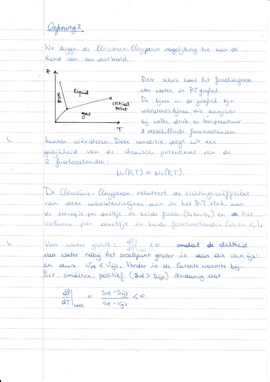 Oefening 2
We leggen de Clausius-Clapeyron vergelijking uit aan de
hand van een voorbeeld.
P
liquid
solid
critical
point
gas
T
Deze schets toont het fasediagram
van water in P,T grafiek.
De lijnen in de grafiek zijn
coëxistentielijnen die aangeven
bij welke druk en temperatuur
2 verschillende fasetoestanden
kunnen coëxisteren. Deze conditie volgt uit een
gelijkheid van de chemische potentiaal van de
2 fasetoestanden:
μ₁(P,T) = μ₂(P,T).
De Clausius-Clapeyron relateert de richtingscoëfficiënt
van deze coëxistentielijnen aan in het P,T vlak aan
de entropie per deeltje in beide fasen en het
volume per deeltje in beide fasetoestanden
Voor water geldt: dP/dT < 0 omdat de dichtheid
van water nabij het smeltpunt groter is dan die van ijs:
en dus Vvl < Vijs. Verder is de latente warmte bij
het smelten positief (Svl > Sijs) zodanig dat
dP/dT|coex = (Svl - Sijs)/(Vvl - Vijs) < 0.